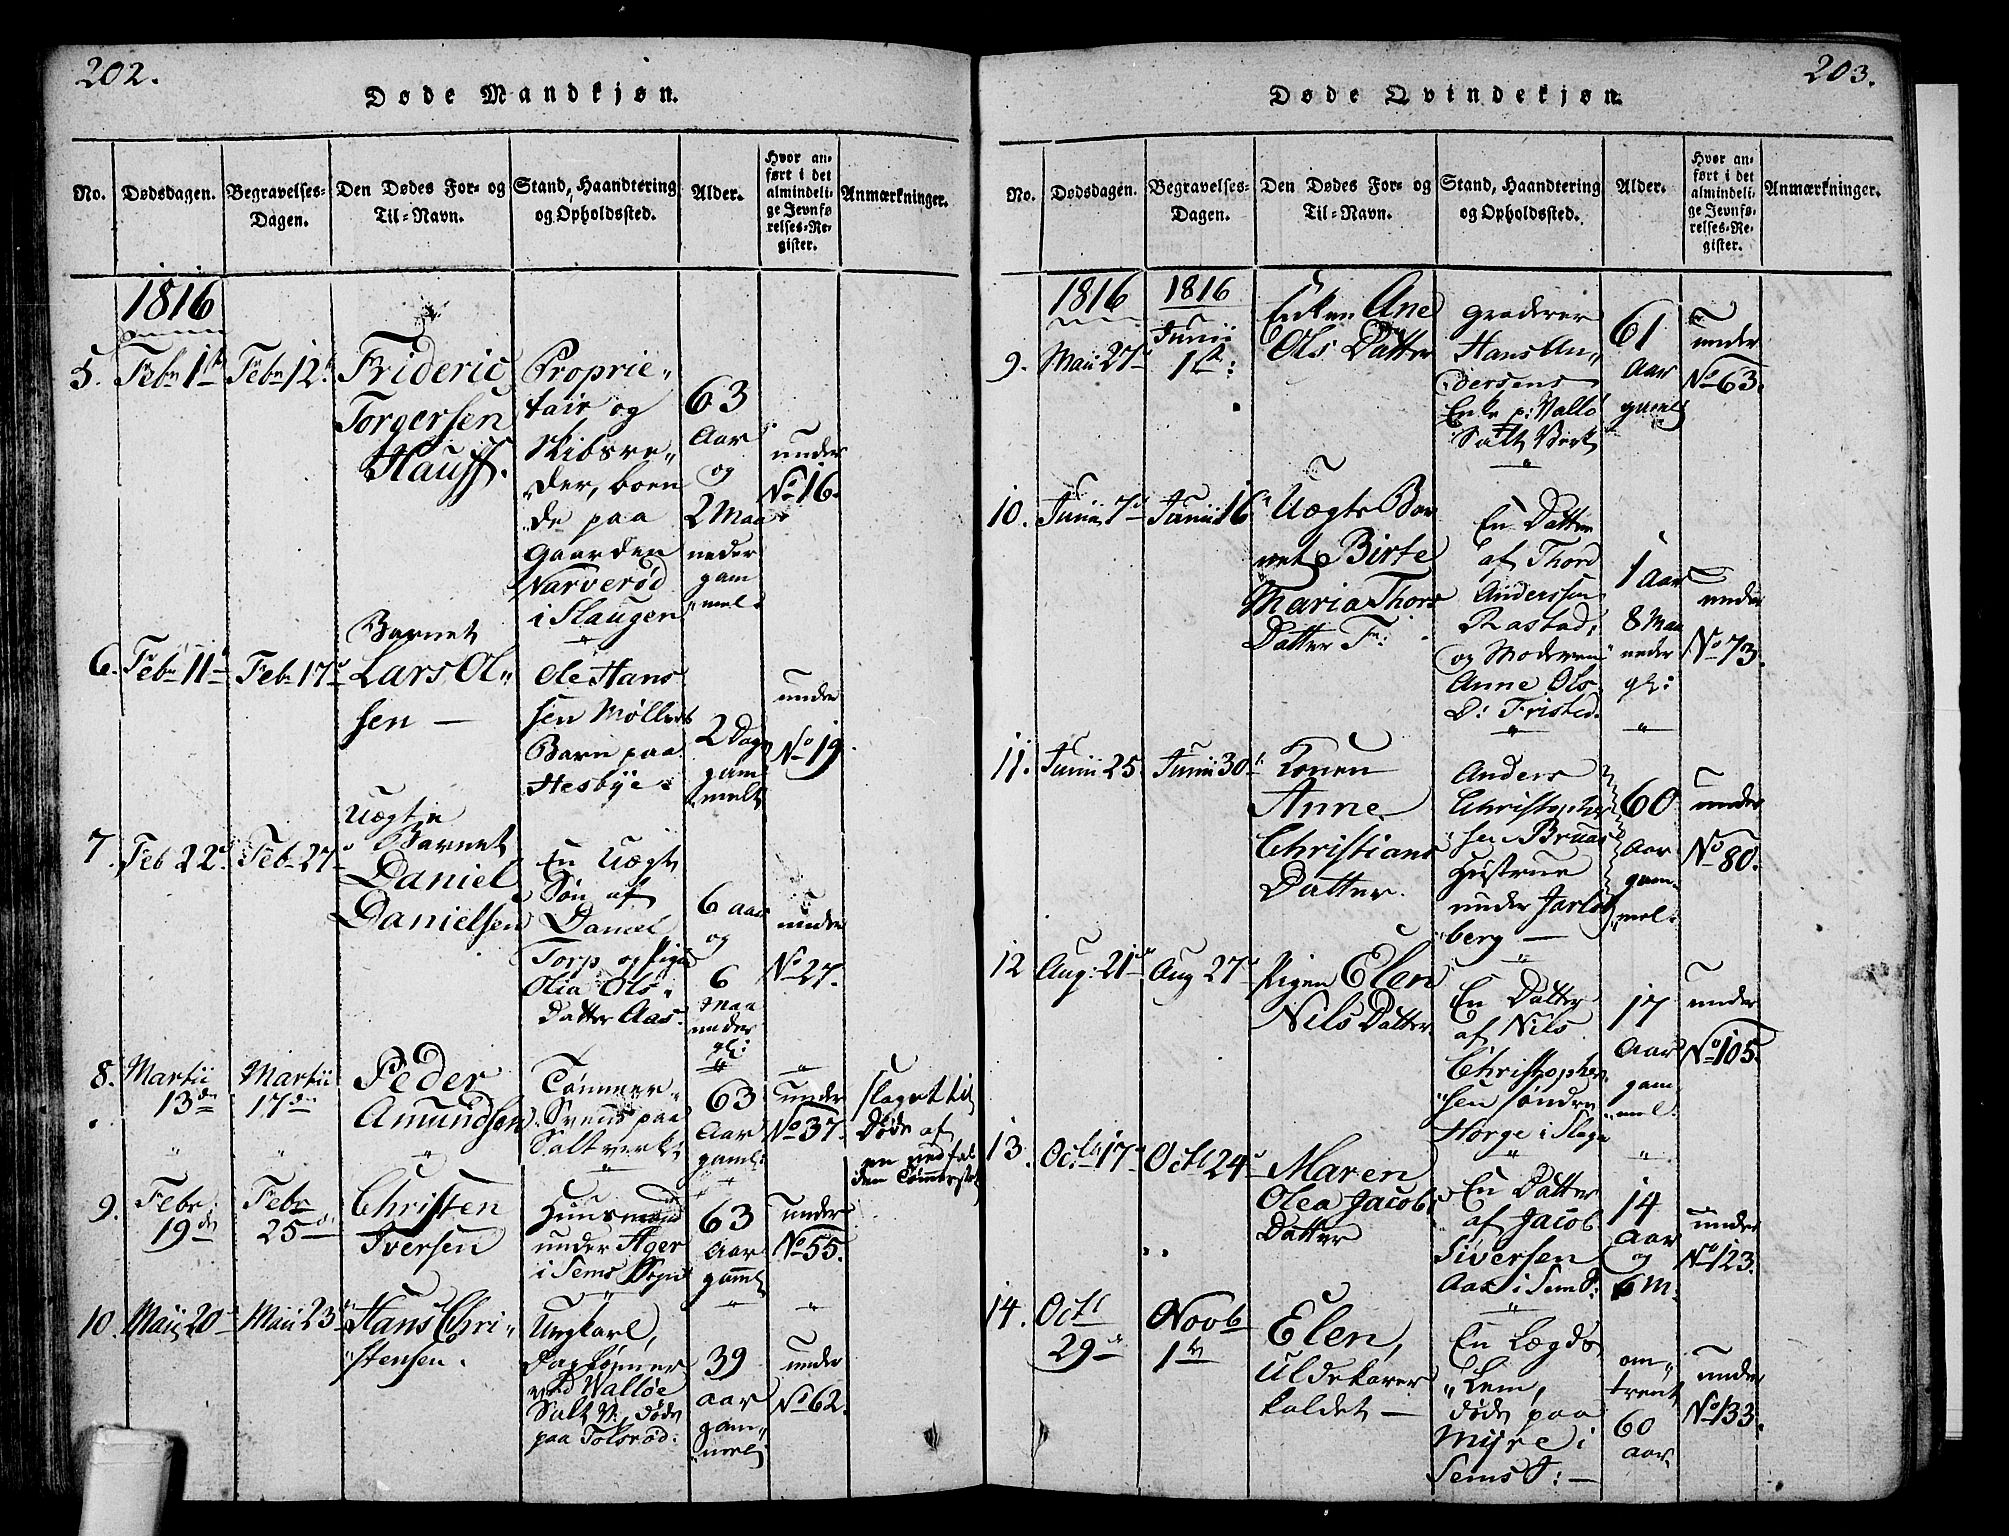 202.
Døde Mandkjøn.
No.
Dødsdagen.
Begravelses-
Dagen.
Den Dødes For- og
Til-Navn.
Stand, Haandtering
og Opholdssted.
Alder.
Hvor an-
ført i det
almindeli-
ge Jevnfø-
relses-Re-
gister.
Anmærkninger.
1816
5.
Febr 1ste
Febr 12.
Frideric
Torgersen
Hauff.
Proprie„
tair og
Skibsre„
der, boen
de paa
Gaarden
Narverød
i Slaugen
63
Aar
og
2 Maa
neder
gam
mel.
under
No 16.
6.
Febr 11
Feb 17
Barnet
Lars Ol„
sen —
Ole Hans
sen Møllers
Barn paa
Hesbye.
2 Dage
gam
melt
under
No 19.
7.
Feb 22
Feb 27
Uægte
Barnet
Daniel
Danielsen
En Uægte
Søn af
Daniel
Torp og Pigen
Olia Ols
Datter Aas.
6 aar
og
6
Maa
neder
gl:
under
No 27.
8.
Martii
13de
Martii
17de
Peder
Amundsen
Tømmer„
Svend paa
Saltverk
63
Aar
gaml:
under
No 37.
slaget til
Døde af
en nedfal
den Tømmerstok
9.
Febr
19de
Febr
25
Christen
Iversen
Huusmand
under Ager
i Sems Sogn
63
Aar
gaml
under
No 55.
10.
Maii 20
Maii 23
Hans Chri„
stensen.
Ungkarl,
Daglønner
ved Walløe
Salt V: døde
paa Tolsrød.
39
aar
gam„
mel
under
No 62.
203.
Døde Qvindekjøn.
No.
Dødsdagen.
Begravelses-
Dagen.
Den Dødes For- og
Til-Navn.
Stand, Haandtering
og Opholdssted.
Alder.
Hvor an-
ført i det
almindeli-
ge Jevnfø-
relses-Re-
gister.
Anmærkninger.
1816
1816
9.
Maii 27
Junii
1st:
Enken Ane
Ols Datter
Graderer
Hans An„
dersens
Enke p: Vallö
Salt Verk
61
Aar
gaml
under
No 63.
10.
Junii 7
Junii 16
Uægte Bar
net Birte
Maria Thors
Datter F:
En Datter
af Thord
Anderssen
Rastad,
og Moderen
Anne Ols
D: Fristed.
1 Aar
8 Maa
neder
gl:
under
No 73.
11.
Junii 25.
Junii 30
Konen
Anne
Christians
Datter.
Anders
Christopher
sen Bruaas
Hustrue
under Jarls
berg —
60
Aar
gam„
mel.
under
No 80.
12
Aug: 21
Aug 27
Pigen Elen
Nils Datter
En Datter
af Nils
Christopher
sen Søndre
Horge i Slagn
17
Aar
gam
mel.
under
No 105.
13.
Octb 17
Octb 24
Maren
Olea Jacobs
Datter
En Datter
af Jacob
Siversen
Aas i Sem S:
14
Aar
og
6 M.
under
No 123.
14.
Octb
29
Novb
1te
Elen,
Uldekarer
kaldet —
En Lægds„
Lem,
døde paa
Myre i
Sems S: —
om„
trent
60
aar
under
No 133.